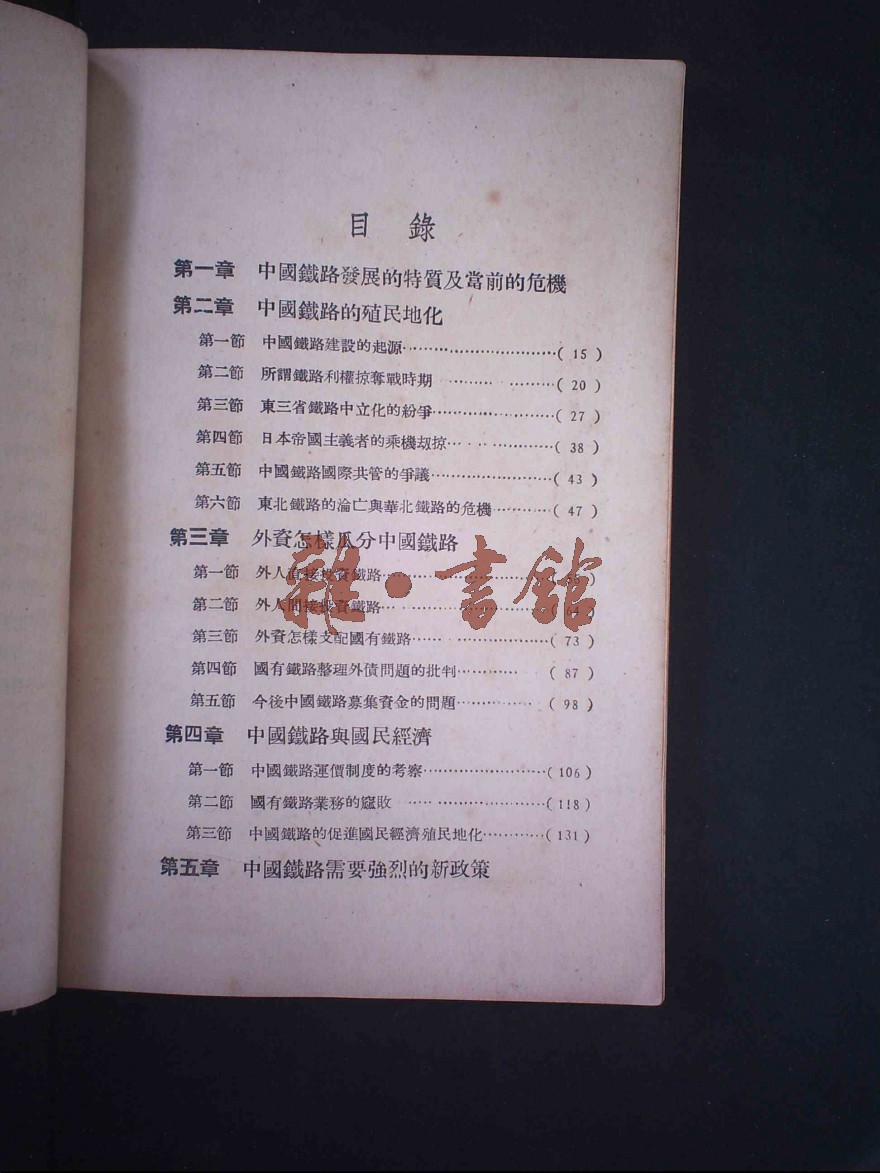 目錄
第一章 中國鐵路發展的特質及當前的危機
第二章 中國鐵路的殖民地化
第一節 中國鐵路建設的起源………………………( 15 )
第二節 所謂鐵路利權掠奪戰時期………………( 20 )
第三節 東三省鐵路中立化的紛爭………………( 27 )
第四節 日本帝國主義者的乘機刼掠………………( 38 )
第五節 中國鐵路國際共管的爭議………………( 43 )
第六節 東北鐵路的淪亡與華北鐵路的危機…………( 47 )
第三章 外資怎樣瓜分中國鐵路
第一節 外人直接投資鐵路………………………
第二節 外人間接投資鐵路………………………
第三節 外資怎樣支配國有鐵路………………( 73 )
第四節 國有鐵路整理外債問題的批判………… ( 87 )
第五節 今後中國鐵路募集資金的問題………… ( 98 )
第四章 中國鐵路與國民經濟
第一節 中國鐵路運價制度的考察………………( 106 )
第二節 國有鐵路業務的窳敗………………( 118 )
第三節 中國鐵路的促進國民經濟殖民地化…………( 131 )
第五章 中國鐵路需要強烈的新政策
雜·書館